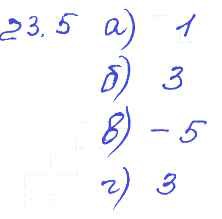 23.5 а) 1
б) 3
в) - 5
г) 3